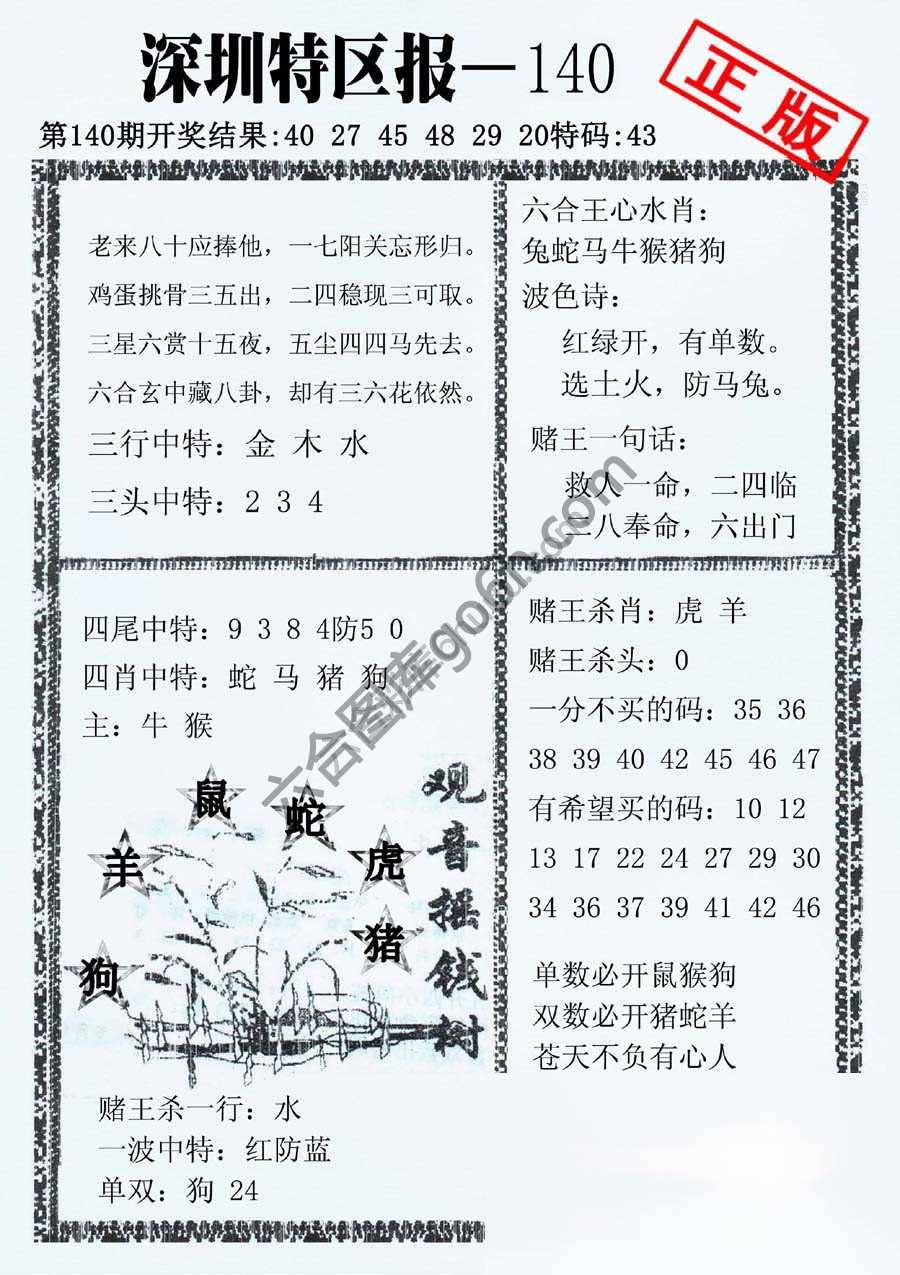 深圳特区报—140
正版
第140期开奖结果:40 27 45 48 29 20特码:43
老来八十应捧他，一七阳关忘形归。
鸡蛋挑骨三五出，二四稳现三可取。
三星六赏十五夜，五尘四四马先去。
六合玄中藏八卦，却有三六花依然。
三行中特：金 木 水
三头中特：2 3 4
六合王心水肖：
兔蛇马牛猴猪狗
波色诗：
红绿开，有单数。
选土火，防马兔。
赌王一句话：
救人一命，二四临
二八奉命，六出门
四尾中特：9 3 8 4防5 0
四肖中特：蛇 马 猪 狗
主：牛 猴
鼠
蛇
羊
虎
猪
狗
观音摇钱树
赌王杀一行：水
一波中特：红防蓝
单双：狗 24
赌王杀肖：虎 羊
赌王杀头：0
一分不买的码：35 36
38 39 40 42 45 46 47
有希望买的码：10 12
13 17 22 24 27 29 30
34 36 37 39 41 42 46
单数必开鼠猴狗
双数必开猪蛇羊
苍天不负有心人